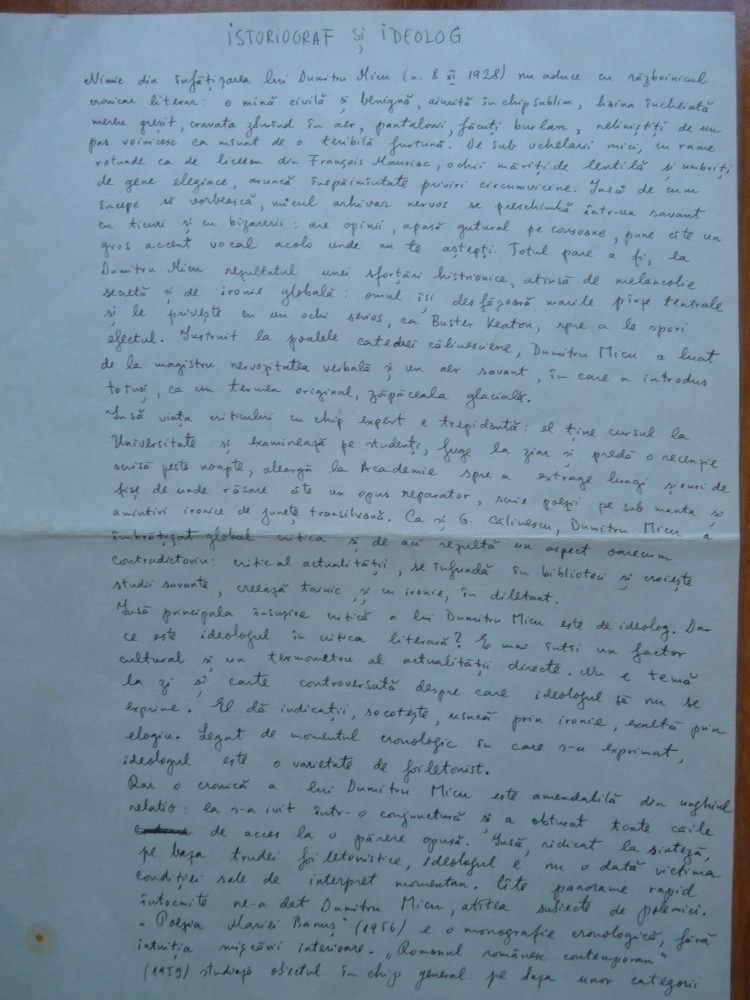 ISTORIOGRAF ȘI IDEOLOG
Nimic din înfățișarea lui Dumitru Micu (n. 8 XI 1928) nu aduce cu războinicul
cronicar literar: o mină civilă și benignă, aiurită în chip sublim, haina încheiată
mereu greșit, cravata zburînd în aer, pantalonii, făcuți burlan, neliniștiți de un
pas voinicesc ca mînat de o teribilă furtună. De sub ochelarii mici, cu rame
rotunde ca de licean din François Mauriac, ochii măriți de lentilă și umbriți
de gene elegiace, aruncă înspăimîntate priviri circumvicine. Însă de cum
începe să vorbească, micul arhivar nervos se preschimbă într-un savant
cu ticuri și cu bizarerii: are opinii, apasă gutural pe consoane, pune cîte un
gros accent vocal acolo unde nu te aștepți. Totul pare a fi, la
Dumitru Micu rezultatul unei sforțări histrionice, atinsă de melancolie
secretă și de ironie globală: omul își desfășoară marile pînze teatrale
și le privește cu un ochi serios, ca Buster Keaton, spre a le spori
efectul. Instruit la poalele catedrei călinesciene, Dumitru Micu a luat
de la magistru nervozitatea verbală și un aer savant, în care a introdus
totuși, ca un termen original, zăpăceala glacială.
Însă viața criticului cu chip expert e trepidantă: el ține cursul la
Universitate și examinează pe studenți, fuge la ziar și predă o recenzie
scrisă peste noapte, aleargă la Academie spre a extrage lungi șiruri de
fișe de unde răsare cîte un opus reparator, scrie poezii pe sub manta și
amintiri ironice de junețe transilvană. Ca și G. Călinescu, Dumitru Micu a
îmbrățișat global critica și de aci rezultă un aspect oarecum
contradictoriu: critic al actualității, se înfundă în biblioteci și croiește
studii savante, creează tainic, și cu ironie, în diletant.
Însă principala însușire critică a lui Dumitru Micu este de ideolog. Dar
ce este ideologul în critica literară? E mai întîi un factor
cultural și un termometru al actualității directe. Nu e temă
la zi și carte controversată despre care ideologul să nu se
exprime. El dă indicații, socotește, usucă prin ironie, exaltă prin
elogiu. Legat de momentul cronologic în care s-a exprimat,
ideologul este o varietate de foiletonist.
Rar o cronică a lui Dumitru Micu este amendabilă din unghiul
relativ: ea s-a ivit într-o conjunctură și a obturat toate căile
de acces la o părere opusă. Însă, ridicat la sinteză,
pe baza trudei foiletonistice, ideologul e nu o dată victima
condiției sale de interpret momentan. Cîte panorame rapid
întocmite ne-a dat Dumitru Micu, atîtea subiecte de polemici.
„Poezia Mariei Banuș" (1956) e o monografie cronologică, fără
intuiția mișcării interioare. „Romanul românesc contemporan"
(1959) studiază obiectul în chip general pe baza unor categorii